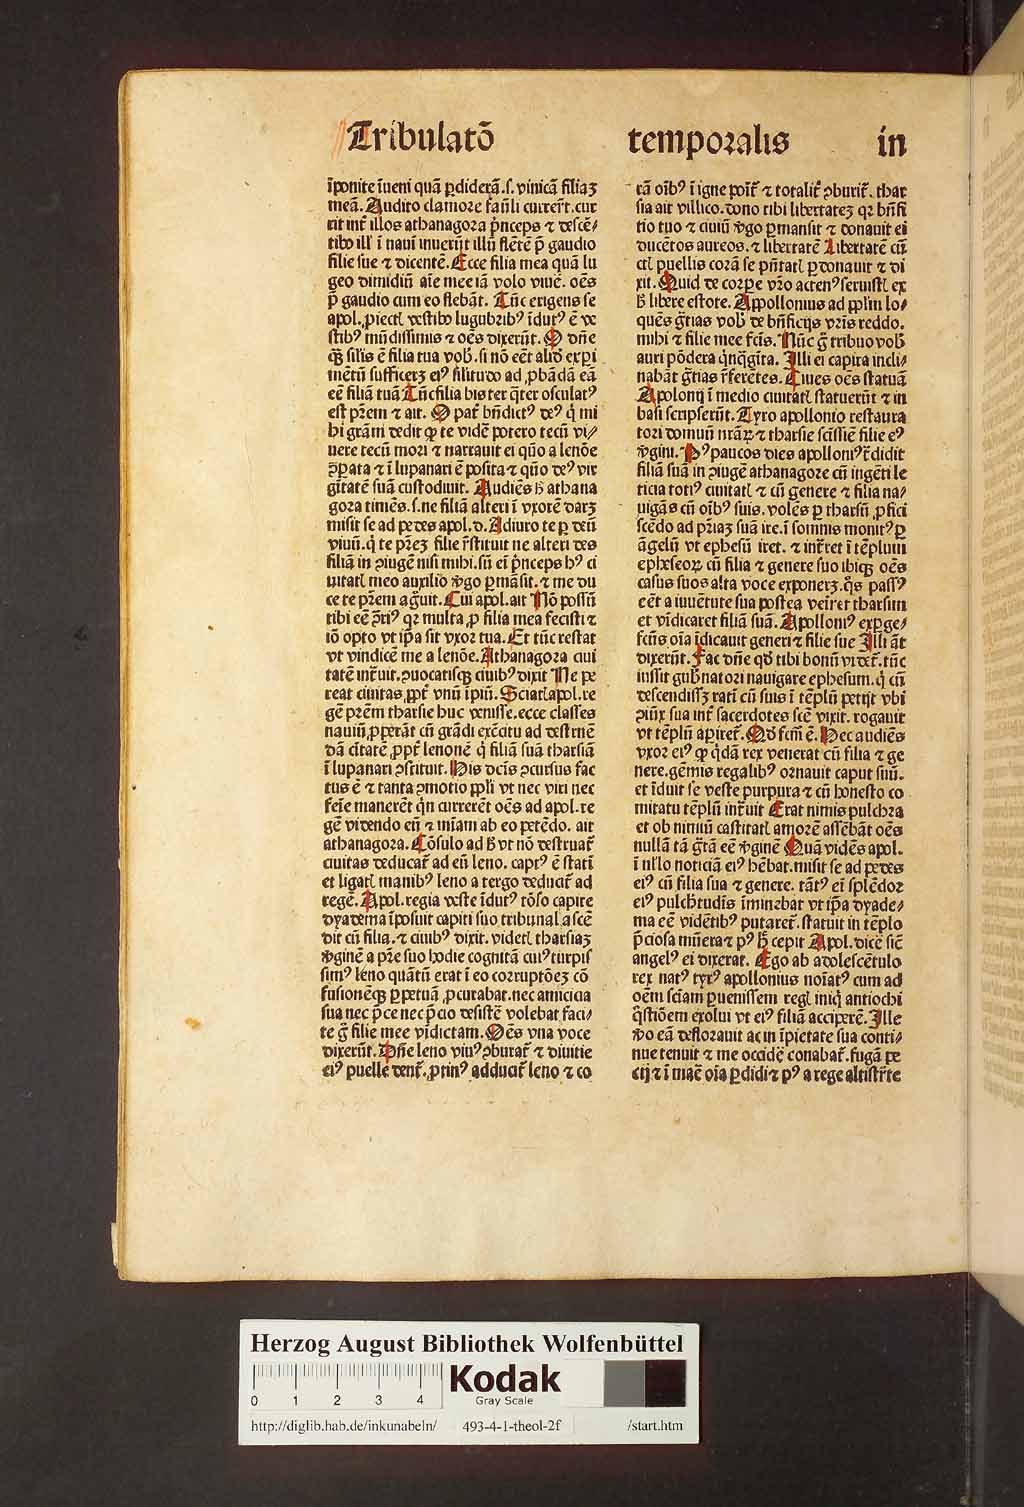 Tribulatō temporalis in
īponite īueni quā ꝑdiderā.ſ. vinicā filiaꝫ
meā. Audito clamore fāuli currer̄t. cur
rit int̄ illos athanagora p̄nceps ⁊ deſcē⸗
tibo ill' ī nauī inuerūt illū flētē p̄ gaudio
filie ſue ⁊ dicentē. Ecce filia mea quā lu
geo dimidiū aīe mee iā volo viuē. oēs
p̄ gaudio cum eo flebāt. Tūc erigens ſe
apol. ꝓiectꝭ veſtibꝰ lugubribꝰ īdutꝰ ē ve
ſtibꝰ mūdiſſimis ⁊ oēs dixerūt. O dn̄e
qꝫ ſilīs ē filia tua vob̄. ſi nō eēt aliđ expi
mētū ſufficerꝫ eiꝰ ſilitudo ad ꝓbādā eā
eē filiā tuā Tūc filia bis ter q̄ter oſculatꝰ
eſt pr̄em ⁊ ait. O pat̄ bn̄dictꝰ deꝰ q̄ mi
hi gr̄am dedit ꝙ te vidē potero tecū vi⸗
uere tecū mori ⁊ narrauit ei quō a lenōe
ꝯꝑata ⁊ ī lupanari ē poſita ⁊ quō deꝰ vir
gītatē ſuā cuſtodiuit. Audiēs ħ athana
gora timēs.ſ. ne filiā alteri ī vxorē darꝫ
miſit ſe ad pedes apol. d. Adiuro te ꝑ deū
viuū. q̄ te pr̄eꝫ filie r̄ſtituit ne alteri des
filiā in ꝯiugē niſi mihi. ſū ei p̄nceps hꝰ ci
uitatꝭ meo auxilio v̄go ꝑmāſit. ⁊ me du
ce te pr̄em aḡuit. Cui apol. ait Nō poſſū
tibi eē ꝯriꝰ qꝛ multa ꝓ filia mea feciſti ⁊
iō opto vt ip̄a ſit vxor tua. Et tūc reſtat
vt vindicē me a lenōe. Athanagora ciui
tatē int̄uit. ꝯuocatiſqꝫ ciuibꝰ dixit Ne pe
reat ciuitas ꝓpt̄ vnū īpiū. Sciatꝭ apol. re
gē pr̄em tharſie huc veniſſe. ecce claſſes
nauiū ꝓperāt cū grādi exēcitu ad deſtruē
dā cītatē ꝓpt̄ lenonē q̄ filiā ſuā tharſiā
ī lupanari ꝯſtituit. His dc̄is ꝯcurſus fac
tus ē ⁊ tanta ꝯmotio ppl̄i vt nec viri nec
feīe manerēt qn̄ currerēt oēs ad apol. re
gē videndo eū ⁊ mīam ab eo petēdo. ait
athanagora. Cōſulo ad ħ vt nō deſtruat̄
ciuitas deducat̄ ad eū leno. captꝰ ē ſtatī
et ligatꝭ manibꝰ leno a tergo deducit̄ ad
regē. Apol. regia veſte īdutꝰ tōſo capite
dyadema īpoſuit capiti ſuo tribunal aſcē
dit cū filia. ⁊ ciuibꝰ dixit. videtꝭ tharſiaꝫ
v̄ginē a pr̄e ſuo hodie cognitā cuiꝰ turpiſ
ſimꝰ leno quātū erat ī eo corruptōeꝫ cō
fuſionēqꝫ ꝑpetuā ꝓcurabat. nec amicicia
ſua nec p̄ce nec p̄cio deſiſtē volebat faci⸗
te g̊ filie mee vīdictam. Oēs vna voce
dixerūt. Dn̄e leno viuꝰ ꝯburat̄ ⁊ diuitie
eiꝰ puelle dent̄. ꝓtinꝰ adducit̄ leno ⁊ co
rā oībꝰ ī igne poīt̄ ⁊ totalit̄ ꝯburit̄. thar
ſia ait villico. dono tibi libertateꝫ qꝛ bn̄fi
tio tuo ⁊ ciuiū v̄go ꝑmanſit ⁊ donauit ei
ducētos aureos. ⁊ libertatē Libertatē cū
ctꝭ puellis corā ſe pn̄tatꝭ ꝑdonauit ⁊ di
xit. Quid de corꝑe vr̄o actenꝰ ſeruiſtꝭ ex
ħ libere eſtote. Appollonius ad ppl̄m lo⸗
quēs gr̄tias vob̄ de bn̄ficijs vr̄is reddo.
mihi ⁊ filie mee fc̄is. Nūc g̊ tribuo vob̄
auri pōdera qnq̄gīta. Illi ei capita incli⸗
nabāt gr̄tias r̄ferētes. Ciues oēs ſtatuā
Apolonij ī medio ciuitatꝭ ſtatuerūt ⁊ in
baſi ſcripſerūt. Tyro apollonio reſtaura
tori domuū nr̄aꝝ ⁊ tharſie ſc̄iſſiē filie eꝰ
v̄gini. Pꝰ paucos dies apolloniꝰ tr̄didit
filiā ſuā in ꝯiugē athanagore cū ingēti le
ticia totiꝰ ciuitatꝭ ⁊ cū genere ⁊ filia na⸗
uigās cū oībꝰ ſuis. volēs ꝑ tharſū ꝓfici
ſcēdo ad pr̄iaꝫ ſuā ire. ī ſomnis monitꝰ ꝑ
āgelū vt epheſū iret. ⁊ int̄ret ī tēplum
epheſeoꝝ cū filia ⁊ genere ſuo ibiqꝫ oēs
caſus ſuos alta voce exponerꝫ. q̄s paſſꝰ
eēt a iuuētute ſua poſtea veīret tharſum
et vīdicaret filiā ſuā. Apolloniꝰ exꝑge⸗
fcūs oīa īdicauit generi ⁊ filie ſue Illi āt
dixerūt. Fac dn̄e qđ tibi bonū videt̄. tūc
iuſſit gub̄natori nauigare epheſum. q̄ cū
deſcendiſſꝫ ratī cū ſuis ī tēplū petijt vbi
ꝯiūx ſua int̄ ſacerdotes ſcē vixit. rogauit
vt tēplū aꝑiret̄. Qđ fcm̄ ē. Hec audiēs
vxor eiꝰ ꝙ q̄dā rex venerat cū filia ⁊ ge
nere. gēmis regalibꝰ ornauit caput ſuū.
et īduit ſe veſte purpura ⁊ cū honeſto co
mitatu tēplū int̄uit Erat nimis pulchra
et ob nimiū caſtitatꝭ amorē aſſēbāt oēs
nullā tā gr̄tā eē v̄ginē Quā vidēs apol.
ī nl̄lo noticiā eiꝰ hēbat. miſit ſe ad pedes
eiꝰ cū filia ſua ⁊ genere. tātꝰ ei ſplēdor
eiꝰ pulcħtudīs īminebat vt ip̄a dyade⸗
ma eē vidētibꝰ putaret̄. ſtatuit in tēplo
p̄cioſa mūera ⁊ pꝰ ħ cepit Apol. dicē ſic̄
angelꝰ ei dixerat. Ego ab adoleſcētulo
rex natꝰ tyrꝰ apollonius noīatꝰ cum ad
oēm ſciam ꝑueniſſem regꝭ iniq̄ antiochi
q̄ſtiōem exolui vt eiꝰ filiā acciperē. Ille
v̄o eā deflorauit ac in īpietate ſua conti⸗
nue tenuit ⁊ me occidē conabat̄. fugā pe
cij ⁊ ī maē oīa ꝑdidi ⁊ pꝰ a rege altiſtr̄te
Herzog August Bibliothek Wolfenbüttel
0 1 2 3 4
Kodak
Gray Scale
http://diglib.hab.de/inkunabeln/ 493-4-1-theol-2f /start.htm